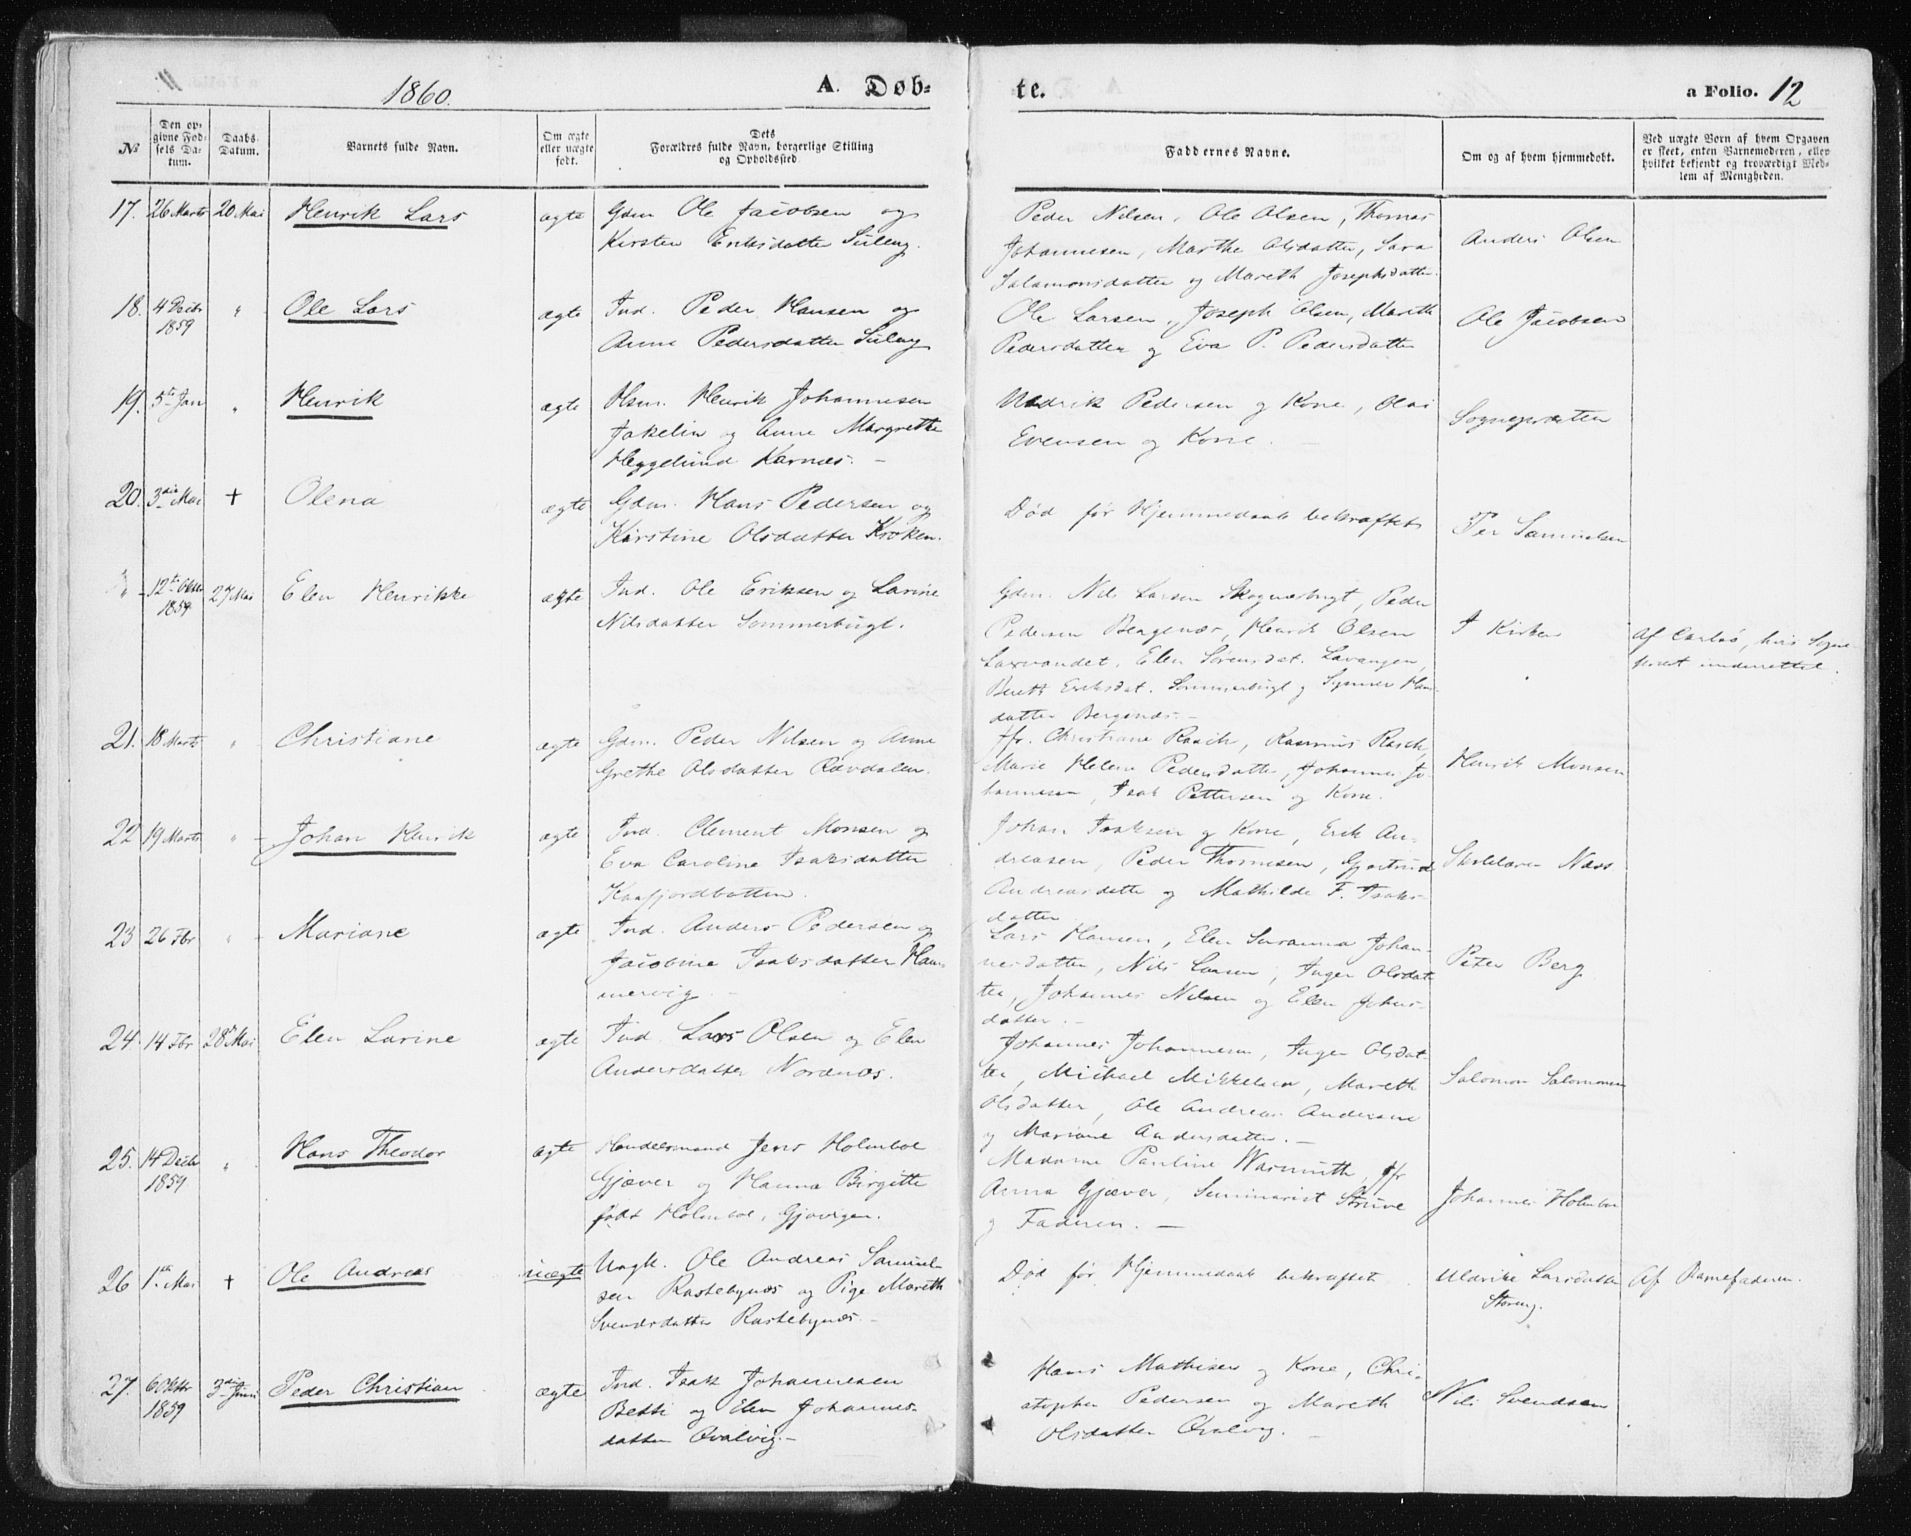 1860.
A. Døb-
te.
a Folio. 12
№
Den op-
givne Fød-
sels Da-
tum.
Daabs
Datum.
Barnets fulde Navn.
Om ægte
eller uægte
født.
Dets
Forældres fulde Navn, borgerlige Stilling
og Opholdssted.
Faddernes Navne.
Om og af hvem hjemmedøbt.
Ved uægte Børn af hvem Opgaven
er skeet, enten Barnemoderen, eller
hvilket bekjendt og troværdigt Med-
lem af Menigheden.
17. 26 Marts 20 Mai Henrik Lars ægte
Gdm Ole Jacobsen og
Kirsten Eriksdatter
Peder Nilsen, Ole Olsen, Thomas
Johannesen, Marthe Olsdatter, Sara
Salamonsdatter og Mareth Josephsdatter.
Anders Olsen
18. 4 Decbr 1859 " Ole Lars ægte
Ind. Peder Hansen og
Anna Pedersdatter
Ole Larsen, Joseph Olsen, Mareth
Pedersdatter og Eva P. Pedersdatter
Ole Jacobsen
19. 5te Jan " Henrik ægte
Hsm. Henrik Johannesen
Jakelin og Anne Margrethe
Heggelund Kernæs. -
Pedersen og Kone, Olai
Evensen og Kone.
Sognepræsten
20. 3die Mai + Olena ægte
Gdm. Hans Pedersen og
Kirstine Olsdatter Kroken.
Død før Hjemmedaab bekræftet
Per Samuelsen
" 12te 1859 27 Mai Elen Henrikke ægte
Ind. Ole Eriksen og Larine
Nilsdatter Sommerbugt.
Gdm. Nils Larsen Skognæbugt, Peder
Pedersen Bergenæs, Henrik Olsen
Laxvandet, Elen Sørensdat. Lavangen,
Berett Eriksdat. Sommerbugt og Hans-
datter Bergenæs. -
I Kirken
Af Carlsø, hvis Sogne
prest underrettet.
21. 18 Marts " Christiane ægte
Gdm. Peder Nilsen og Anne
Grethe Olsdatter
Jfr. Christiane Rasch, Rasmus Rasch,
Marie Helene Pedersdatter, Johannes Jo-
hannesen, Isak Pettersen og Kone.
Henrik Monsen
22 19 Marts " Johan Henrik ægte
Ind. Clement Monsen og
Eva Caroline Isaksdatter
Kaafjordbotten.
Johan Isaksen og Kone, Erik An-
dreasen, Peder Thomesen, Gjertrud
Andreasdatter og Mathilde F. Isaks-
datter
Skolelærer Næss
23 26 Fbr " Mariane ægte
Ind. Anders Pedersen og
Jacobine Isaksdatter Ham-
mervig. -
Lars Hansen, Elen Susanna Johan-
nesdatter, Nils Larsen, Inger Olsdat-
ter, Johannes Nilsen og Elen Johns-
datter. -
Peter Berg
24. 14 Fbr 28de Mai Elen Larine ægte
Ind. Lars Olsen og Elen
Andersdatter Nordnæs.
Johannes Johannesen, Inger Olsdat-
ter, Michael Mikkelsen, Mareth
Olsdatter, Ole Andreas Andersen
og Mariane Andersdatter. -
Salomon Salomonsen
25. 14 Decbr 1859 " Hans Theodor ægte
Handelsmand Jens Holmboe
Gjæver og Hanna Birgitte
født Holmboe, Gjøvigen.
Madame Pauline Warmuth, Jfr
Anna Gjæver, Seminarist Struve
og Faderen. -
Johannes Holmboe
26 1ste Mai + Ole Andreas uægte
Ungk. Ole Andreas Samuel-
sen Rastebynæs og Pige Mareth
Svendsdatter Rastebynæs. -
Død før Hjemmedaab bekræftet
Uldrikke Larsdatter
Af Barnefaderen.
27. 6 Oktbr 1859 3die Juni Peder Christian ægte
Ind. Isak Johannesen
Betti og Elen Johannes-
datter Qvalvig. -
Hans Mathisen og Kone, Chri-
stopher Pedersen og Mareth
Olsdatter Qvalvig. -
Nils Svendsen